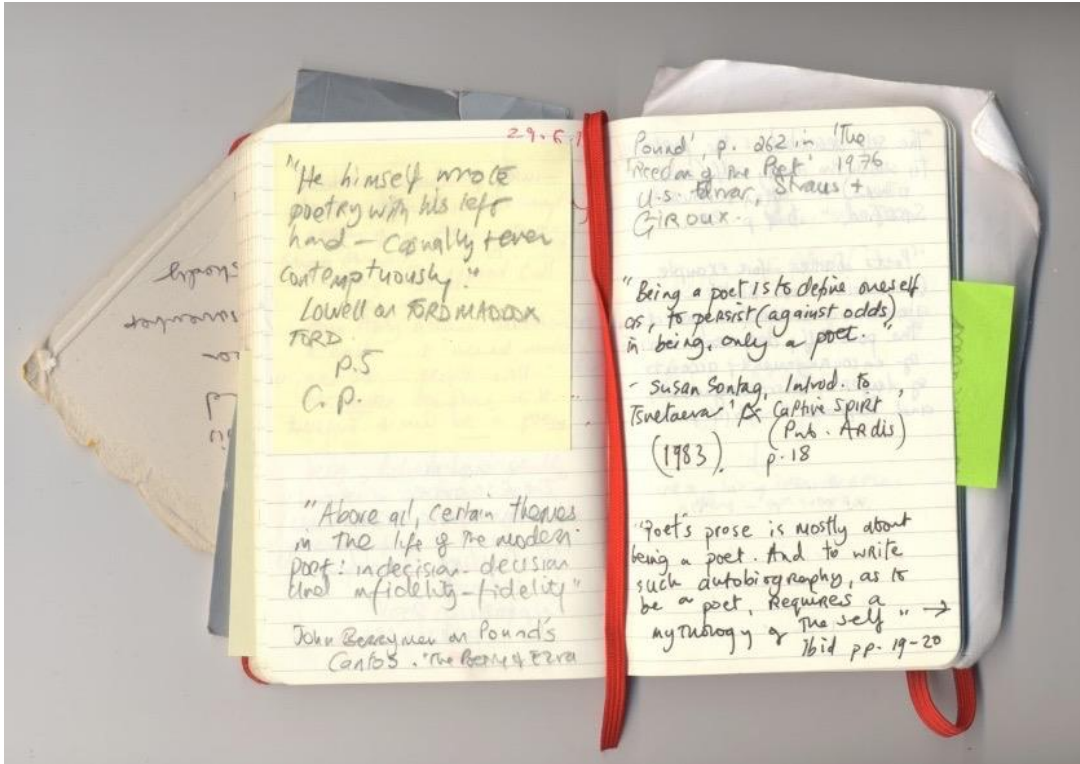 29.6.
"He himself wrote
poetry with his left
hand – casually + even
contemptuously."
Lowell on FORD MADDOX
FORD.
p.5
C.P.
"Above all, certain themes
in the life of the modern
poet: indecision-decision
and infidelity-fidelity"
John Berryman on Pound's
Cantos. 'The Poetry of Ezra
Pound', p. 262 in 'The
Freedom of the Poet' 1976
U.S. Farrar, Straus +
GIROUX.
"Being a poet is to define oneself
as, to persist (against odds)
in being, only a poet."
- Susan Sontag, Introd. to
Tsvetaeva' A Captive SPIRT
(Pub. ARdis)
(1983). p.18
"Poet's prose is mostly about
being a poet. And to write
such autobiography, as to
be a poet, requires a
mythology of the self" →
Ibid pp. 19-20
shortly